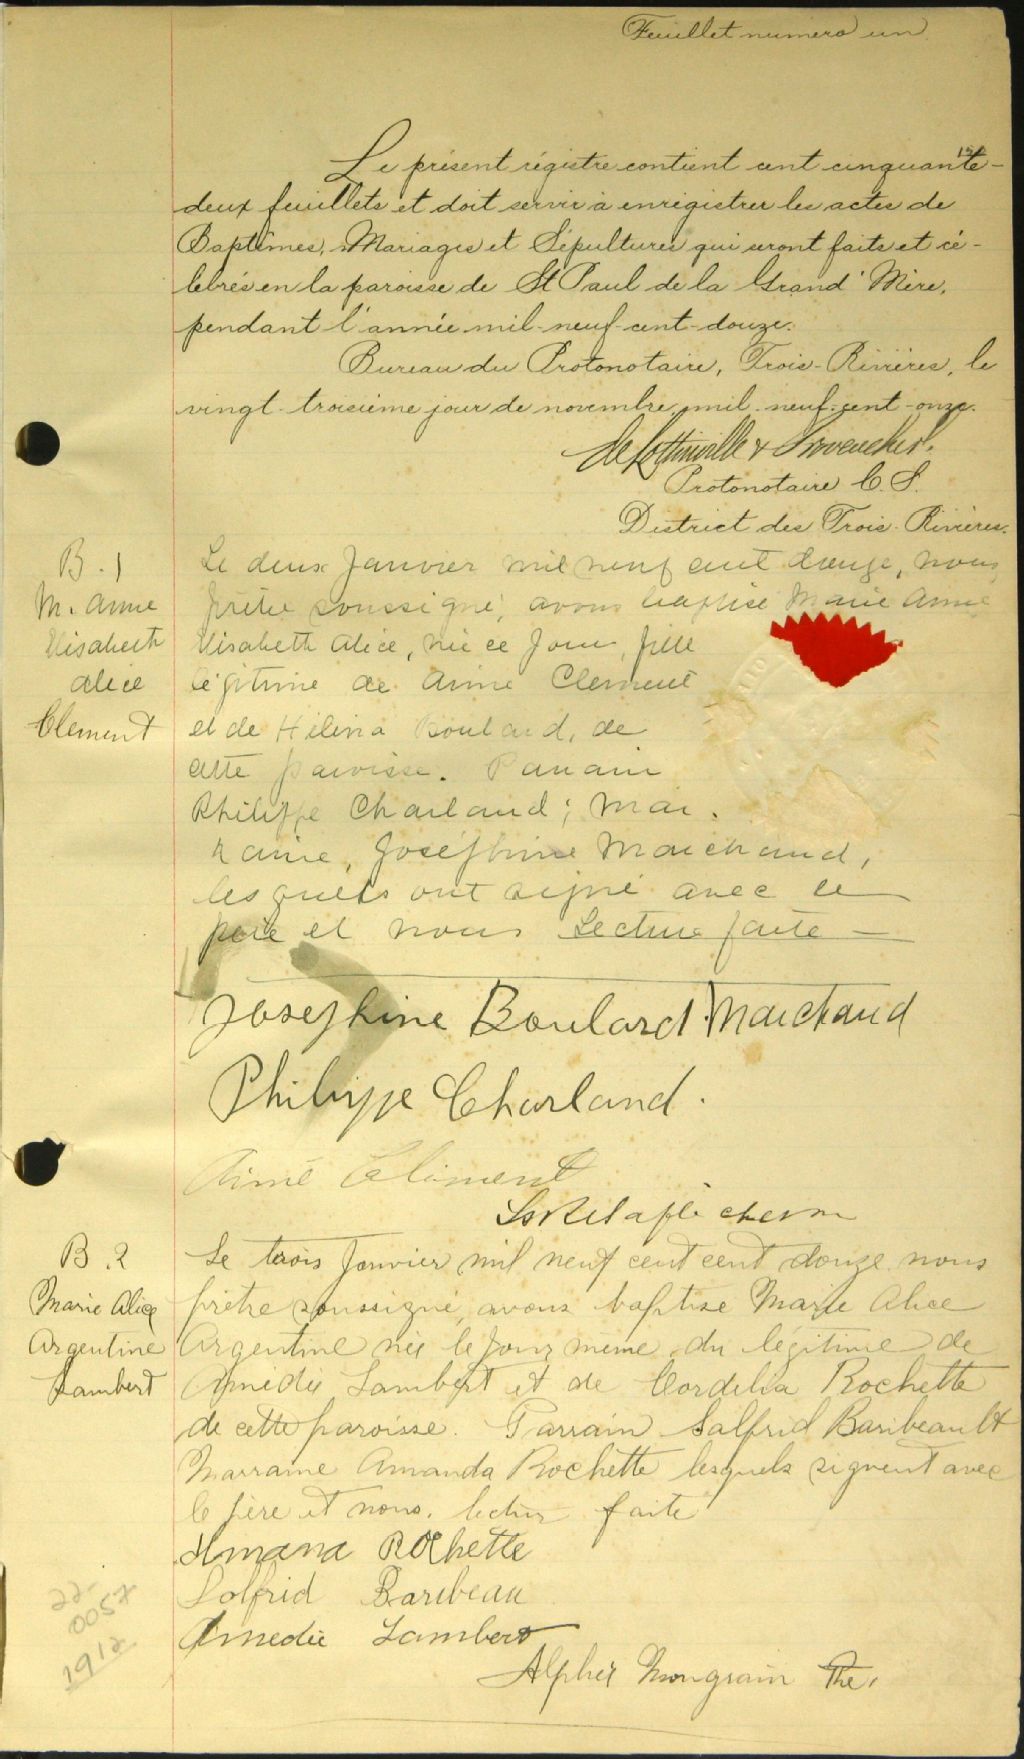 Feuillet numero un
152
Le présent régistre contient cent cinquante-
deux feuillets et doit servir à enregistrer les actes de
Baptêmes, Mariages et Sépultures qui seront faits et cé-
lebrés en la paroisse de St Paul de la Grand' Mère,
pendant l'année mil-neuf-cent-douze.
Bureau du Protonotaire, Trois-Rivières, le
vingt-troisième jour de novembre, mil-neuf-cent-onze.
de Lottinville & Provencher.
Protonotaire C. S.
District des Trois-Rivières.
B. 1
M. Anne
Elisabeth
Alice
Clement
Le deux Janvier mil neuf cent douze, nous
prêtre soussigné, avons baptisé Marie Anne
Elisabeth Alice, née ce jour, fille
légitime de Aimé Clement
et de Hélina Boulard, de
cette paroisse. Parrain
Philippe Charland; Mar.
raine, Joséphine Marchand,
lesquels ont signé avec le
père et nous Lecture faite —
Josephine Boulard.Marchand
Philippe Charland.
Aimé Clément
B. 2
Marie Alice
Argentine
Lambert
Le trois Janvier mil neuf cent cent douze nous
prêtre soussigné, avons baptisé Marie Alice
Argentine née le jour même, du légitime de
Amédée Lambert et de Cordelia Rochette
de cette paroisse. Parrain Salfrid Baribeault
Marraine Amanda Rochette lesquels signent avec
le père et nous. lecture faite
Amana Rochette
Solfrid Baribeau
Amedée Lambert
Alphée Mongrain Ptre,
22-
0057
1912